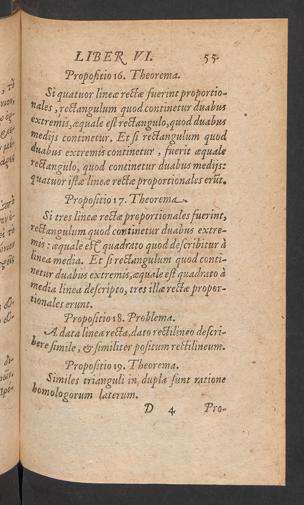 LIBER VI. 55.
Propositio 16. Theorema.
Si quatuor lineæ rectæ fuerint proportio-
nales, rectangulum quod continetur duabus
extremis, æquale est rectangulo, quod duabus
medijs continetur. Et si rectangulum quod
duabus extremis continetur, fuerit æquale
rectangulo, quod continetur duabus medijs:
quatuor istæ lineæ rectæ proportionales erũt.
Propositio 17. Theorema.
Si tres lineæ rectæ proportionales fuerint,
rectangulum quod continetur duabus extre-
mis: æquale est quadrato quod describitur à
linea media. Et si rectangulum quod conti-
netur duabus extremis, æquale est quadrato à
media linea descripto, tres illæ rectæ propor-
tionales erunt.
Propositio 18. Problema.
A data linea recta, dato rectilineo descri-
bere simile, & similiter positum rectilineum.
Propositio 19. Theorema.
Similes trianguli in dupla sunt ratione
homologorum laterum.
D 4 Pro-